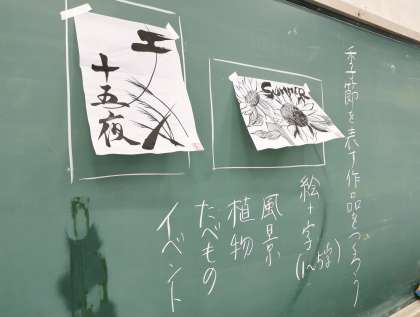 季節を表す作品をつくろう
絵+字(1~5字)
風景
植物
たべもの
イベント
SUMMER
十五夜